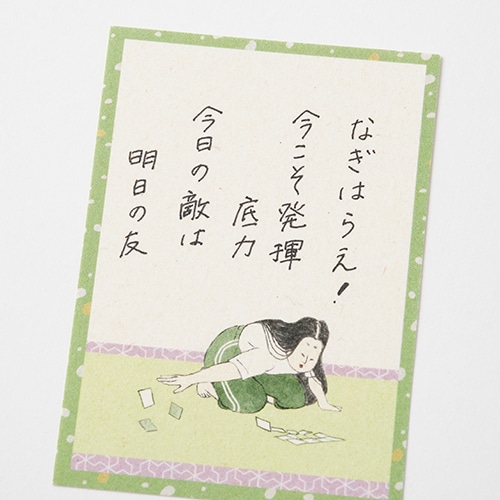 なぎはらえ!
今こそ発揮
底力
今日の敵は
明日の友